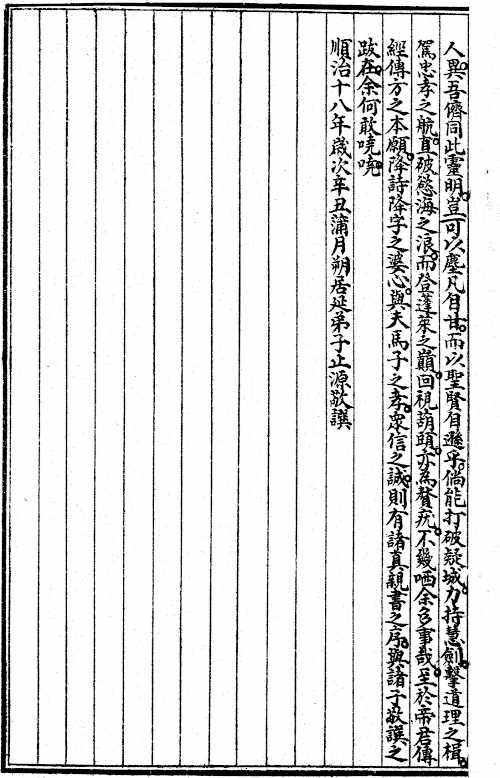 人異吾儕同此靈明豈可以塵凡自甘而以聖賢自遜乎倘能打破疑城力持慧劍擊道理之楫
駕忠孝之航直破慾海之浪而登蓬萊之巔回視葫頭亦為贅疣不幾哂余多事哉至於帝君傳
經傳方之本願降詩降字之婆心與夫馬子之孝衆信之誠則有諸真親書之序與諸子敬譔之
跋在余何敢嘵嘵
順治十八年歲次辛丑蒲月朔居延弟子止源敬譔